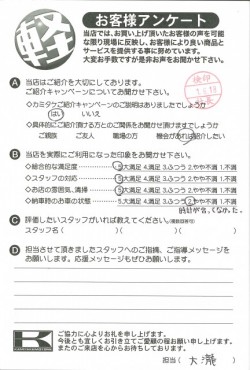 軽
お客様アンケート
当店では、お買い上げ頂いたお客様の声を可能
な限り現場に反映し、お客様により良い商品と
サービスを提供する事に努めています。
大変お手数ですが是非お声をお聞かせ下さい。
A 当店はご紹介を大切にしております。
ご紹介キャンペーンについてお聞かせ下さい。
◇カミタケご紹介キャンペーンのご説明はありましたでしょうか
はい いいえ
◇具体的にご紹介頂ける方とのご関係をお聞かせ頂けますでしょうか
ご親族 ご友人 職場の方 機会があれば紹介したい
B 当店を実際にご利用になった印象をお聞かせ下さい。
◇総合的な満足度 5.大満足 4.満足 3.ふつう 2.やや不満 1.不満
◇スタッフの対応 5.大満足 4.満足 3.ふつう 2.やや不満 1.不満
◇お店の雰囲気、清掃 5.大満足 4.満足 3.ふつう 2.やや不満 1.不満
◇納車時のお車の状態 5.大満足 4.満足 3.ふつう 2.やや不満 1.不満
C 評価したいスタッフがいれば教えてください。(複数回答可)
スタッフ名( )( )( )
D 担当させて頂きましたスタッフへのご指摘、ご指導メッセージを
お願いします。応援メッセージもぜひお願いします。
K
ご協力に心よりお礼を申し上げます。
今後とも宜しくお引き立てご愛顧の程お願い申し上げます。
またのご来店を心からお待ちしております。
担当( 大瀧 )